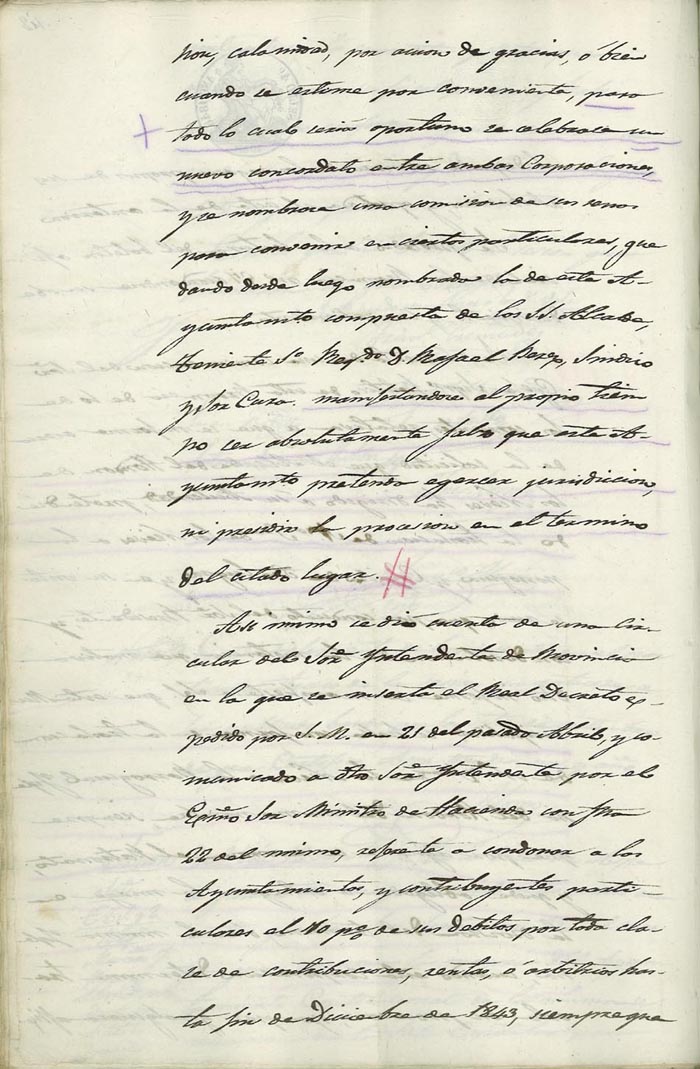 calamidad, por accion de gracias, ó bien
cuando se estime por conveniente, para
todo lo cual seria oportuno se celebrase un
nuevo concordato entre ambas Corporaciones,
y se nombrase una comision de sus senos
para convenir en ciertos particulares, que
dando desde luego nombrada la de este A-
yuntamto compuesta de los SS. Alcalde,
Teniente 1º Regdo D. Rafael Perez, Sindico
y Sor Cura. manifestandose al propio tiem
po ser absolutamente falso que este A-
yuntamto pretenda egercer jurisdiccion,
ni presidir la procesion en el termino
del citado lugar.
Asi mismo se dió cuenta de una Cir-
cular del Sor Yntendente de Provincia
en la que se inserta el Real Decreto ex-
pedido por S. M. en 21 del pasado Abril, y co-
municado a dho Sor Yntendente por el
Exmo Sor Ministro de Hacienda con fha
22 del mismo, referente a condonar a los
Ayuntamientos, y contribuyentes parti-
culares el pº de sus debitos por toda cla-
se de contribuciones, rentas, ó arbitrios has-
ta fin de Diciembre de 1843, siempre que